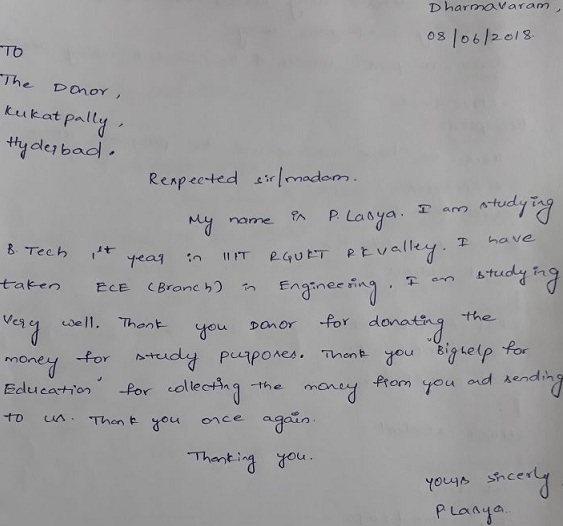 Dharmavaram,
08/06/2018.
TO
The Donor,
Kukatpally,
Hyderbad.
Respected sir/madam.
My name is P. Lasya. I am studying
B. Tech 1st year in IIIT RGUKT RKvalley. I have
taken ECE (Branch) in Engineering. I am studying
very well. Thank you Donor for donating the
money for study purposes. Thank you "Bighelp for
Education" for collecting the money from you ad sending
to us. Thank you once again.
Thanking you.
yours sincerly
P Lasya.